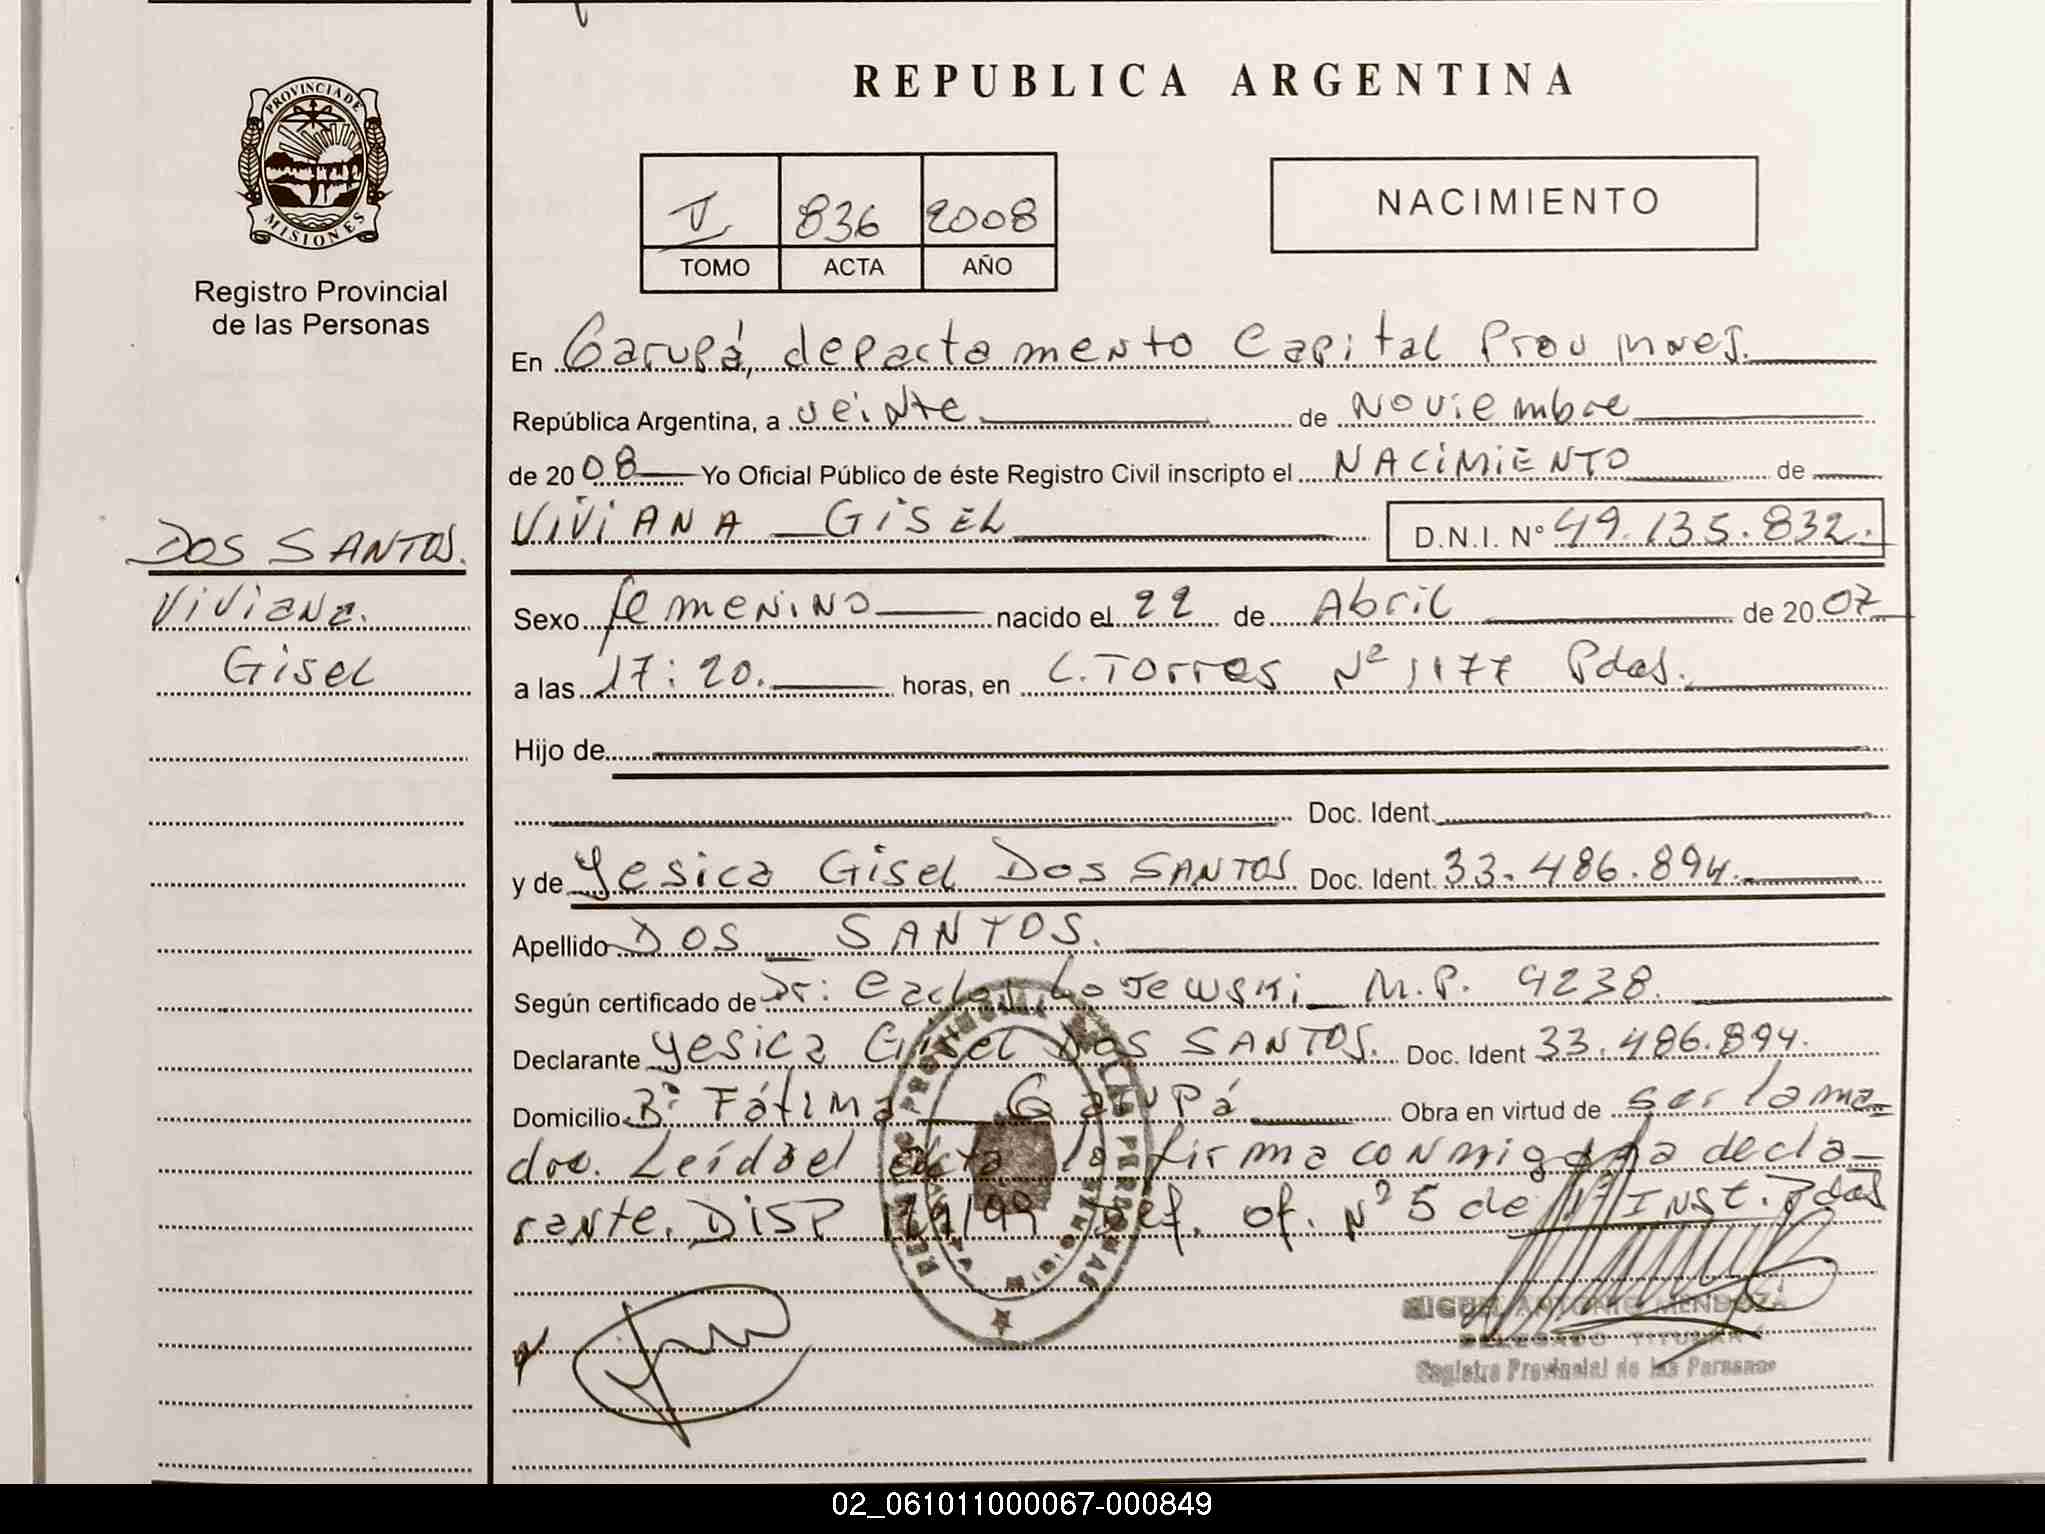 REPUBLICA ARGENTINA
PROVINCIA DE
MISIONES
Registro Provincial
de las Personas
V 836 2008
TOMO ACTA AÑO
NACIMIENTO
En Garupá, departamento Capital Prov Mnes.
República Argentina, a veinte de Noviembre
de 2008 Yo Oficial Público de éste Registro Civil inscripto el NACIMIENTO de
VIVIANA GISEL D.N.I. Nº 49.135.832.
DOS SANTOS.
Viviana.
Gisel
Sexo femenino nacido el 22 de Abril de 2007
a las 17:20. horas, en C. Torres Nº 1177 Pdas.
Hijo de
Doc. Ident.
y de Yesica Gisel Dos SANTOS Doc. Ident. 33.486.894.
Apellido DOS SANTOS.
Según certificado de Dr: Carlos Lojewski M.P. 4238.
Declarante Yesica Gisel Dos SANTOS. Doc. Ident 33.486.894.
Domicilio Bº Fátima Garupá Obra en virtud de ser la ma
dre. Leída el acta la firma conmigo la decla
rante. DISP Def. of. Nº 5 de INST. Pdas
MIGUEL ANTONIO MENDOZA
DELEGADO TITULAR
Registro Provincial de las Personas
02_061011000067-000849